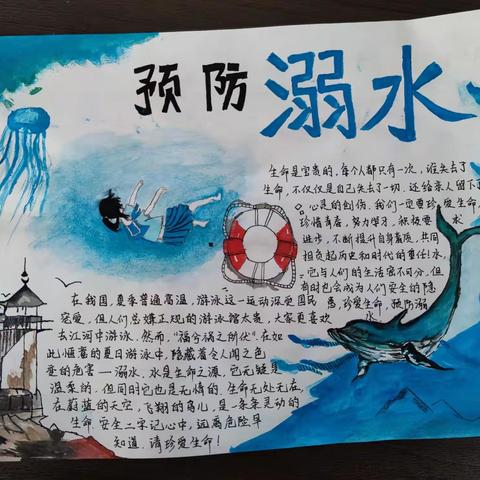 预防溺水
生命是宝贵的,每个人都只有一次,谁失去了
生命,不仅仅是自己失去了一切,还给亲人留下了
心灵的创伤。我们一定要珍爱生命,
珍惜青春,努力学习,积极要求
进步,不断提升自身素质,共同
担负起历史和时代的重任!水,
它与人们的生活密不可分,但
有时也会成为人们安全的隐
患,珍爱生命,预防溺水
在我国,夏季普遍高温,游泳这一运动深受国民
宠爱,但人们总嫌正规的游泳馆太贵,大家更喜欢
去江河中游泳.然而,"福兮祸之所伏".在如
此惬意的夏日游泳中,隐藏着令人闻之色
变的危害——溺水.水是生命之源,它无疑是
温柔的.但同时它也是无情的.生命无处无在,
在蔚蓝的天空,飞翔的鸟儿,是一条条灵动的
生命.安全二字记心中,远离危险早
知道.请珍爱生命!